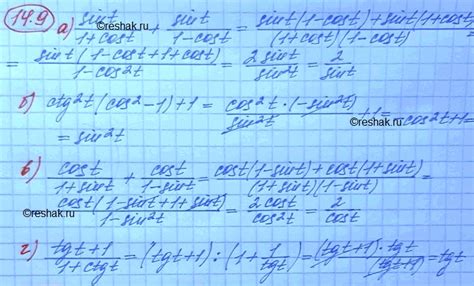 14.9 а) sint/(1+cost) + sint/(1-cost) = (sint(1-cost)+sint(1+cost))/((1+cost)(1-cost)) =
= sint(1-cost+1+cost)/(1-cos²t) = 2sint/sin²t = 2/sint
©reshak.ru
б) ctg²t(cos²-1)+1 = cos²t·(-sin²t)/sin²t +1 = -cos²t+1=
©reshak.ru
= sin²t
в) cost/(1+sint) + cost/(1-sint) = (cost(1-sint)+cost(1+sint))/((1+sint)(1-sint)) =
cost(1-sint+1+sint)/(1-sin²t) = 2cost/cos²t = 2/cost
©reshak.ru
г) (tgt+1)/(1+ctgt) = (tgt+1):(1+1/tgt) = (tgt+1)·tgt/(tgt+1) = tgt
©reshak.ru